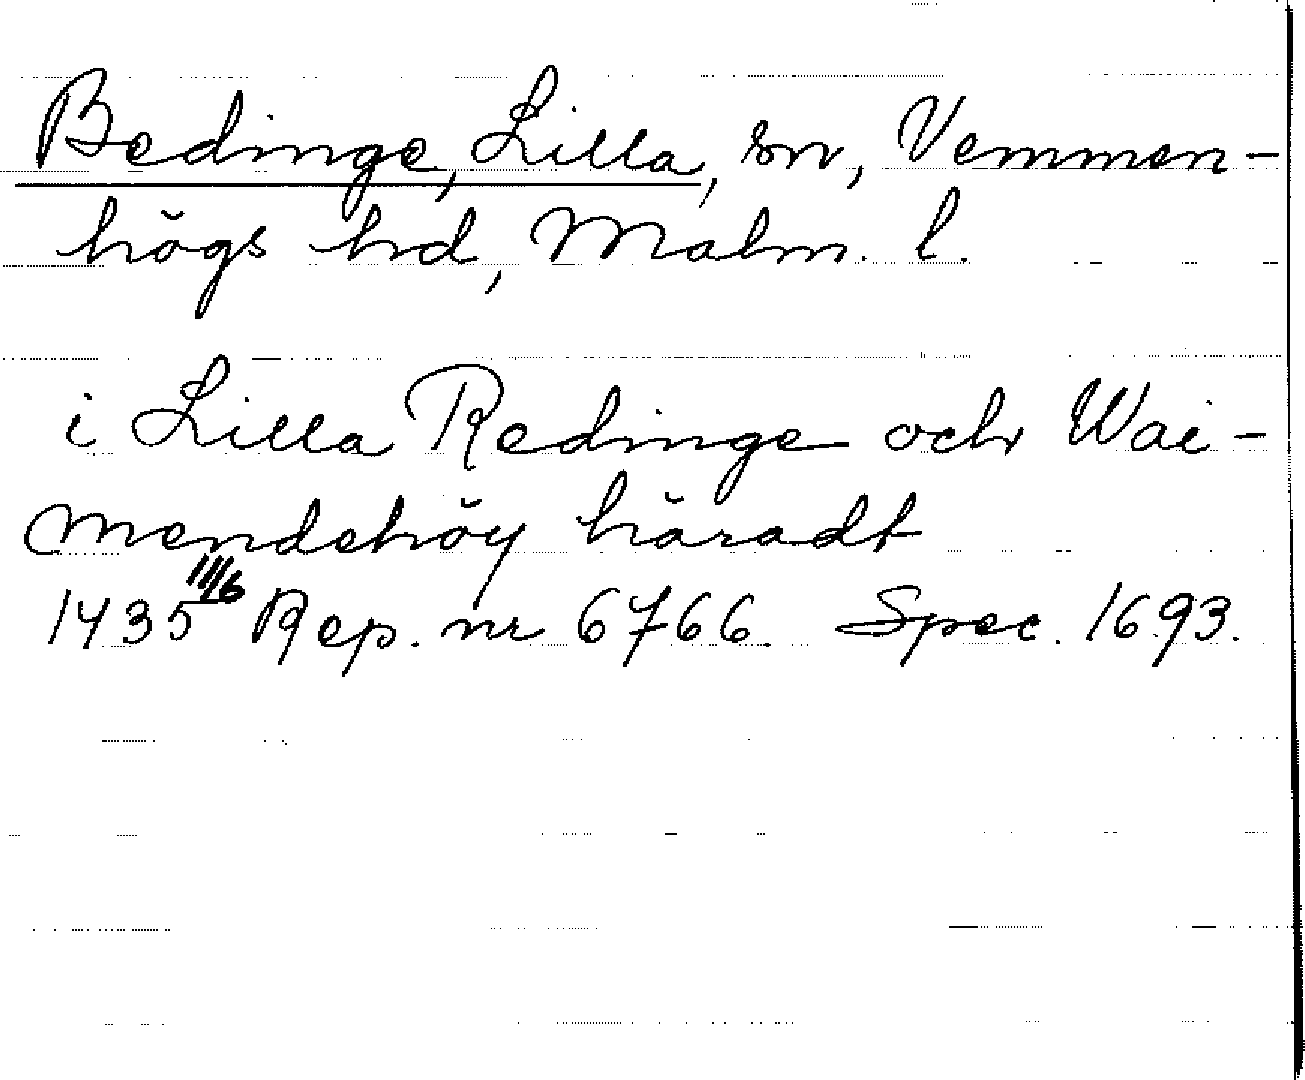 Bedinge, Lilla, sn, Vemmen-
högs hd, Malm. l.
i Lilla Redinge och Wai-
mendehöy häradt
1435 11/6 Rep. nr 6766. Spec. 1693.